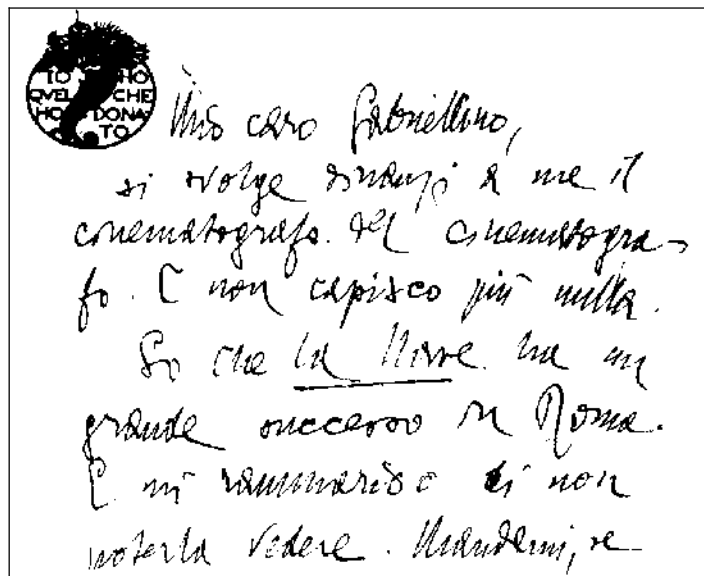 IO HO
QVEL CHE
HO DONA
TO
Mio caro Gabriellino,
si svolge dinanzi a me il
cinematografo del cinematogra-
fo. E non capisco più nulla.
So che la Nave ha un
grande successo in Roma.
E mi rammarico di non
poterla vedere. Mandami, se